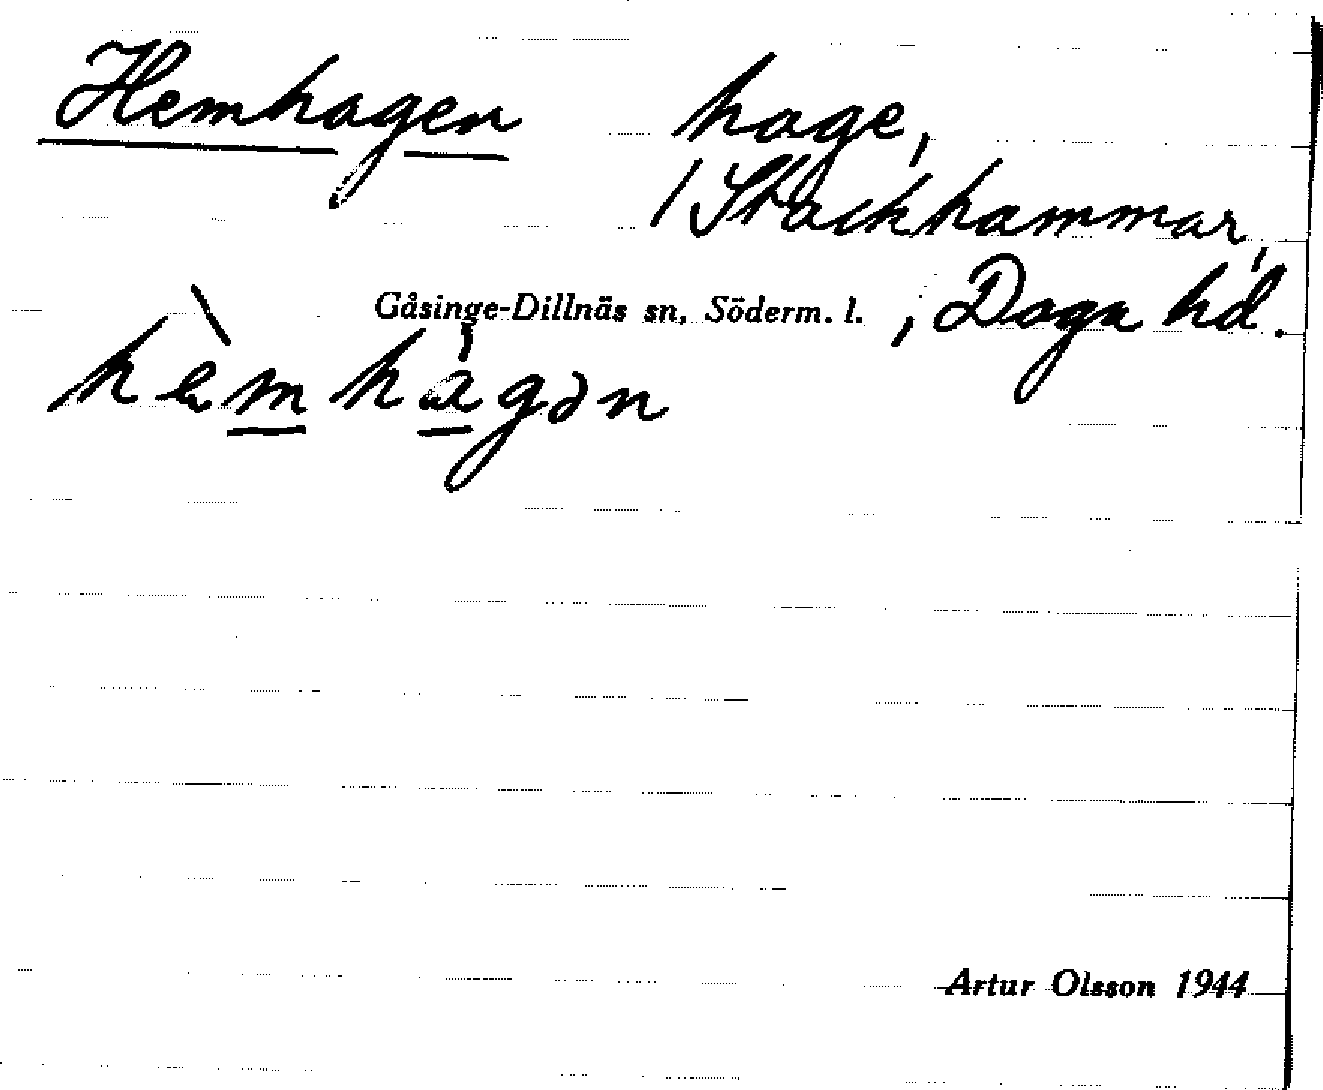 Hemhagen hage,
/Stackhammar,
Gåsinge-Dillnäs sn, Söderm. l. , Daga hd.
hèmhágən
Artur Olsson 1944